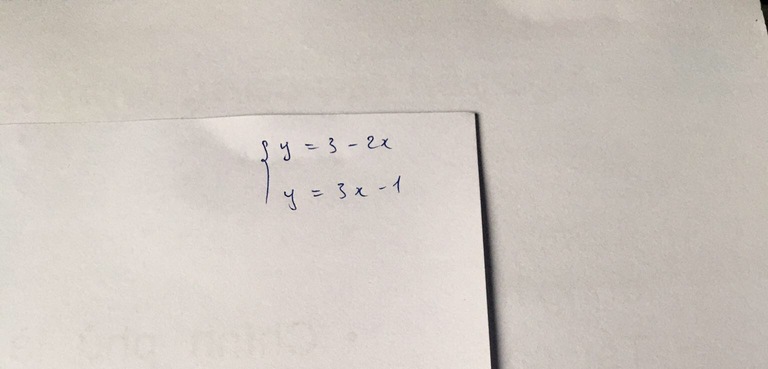 { y = 3 - 2x
y = 3x - 1